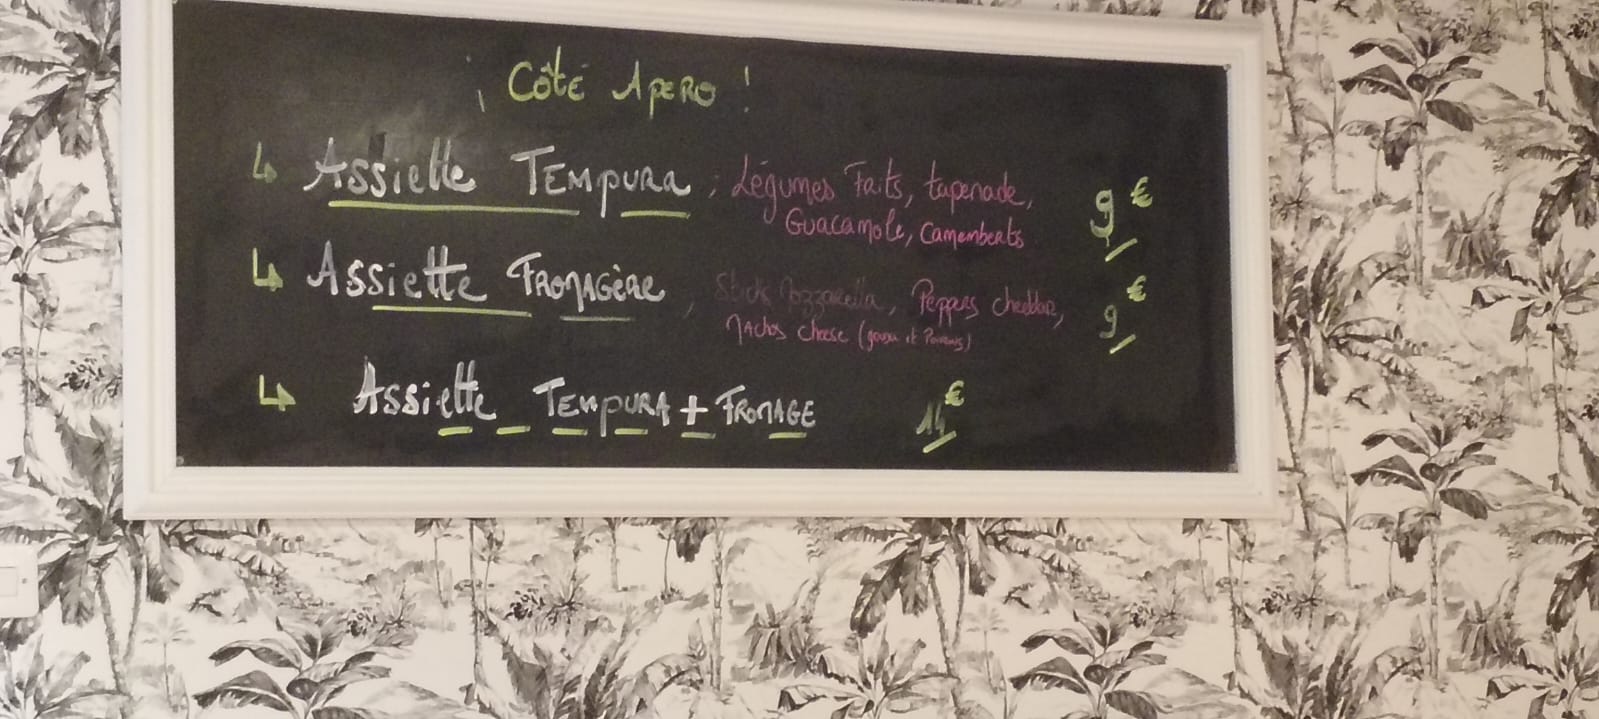 ¡ Côté Apero !
↳ Assiette Tempura ; Légumes Faits, tapenade,
Guacamole, Camemberts 9€
↳ Assiette Fromagère , Sticks Mozzarella, Peppers cheddar,
Nachos cheese 9€
↳ Assiette _ Tempura + Fromage 14€